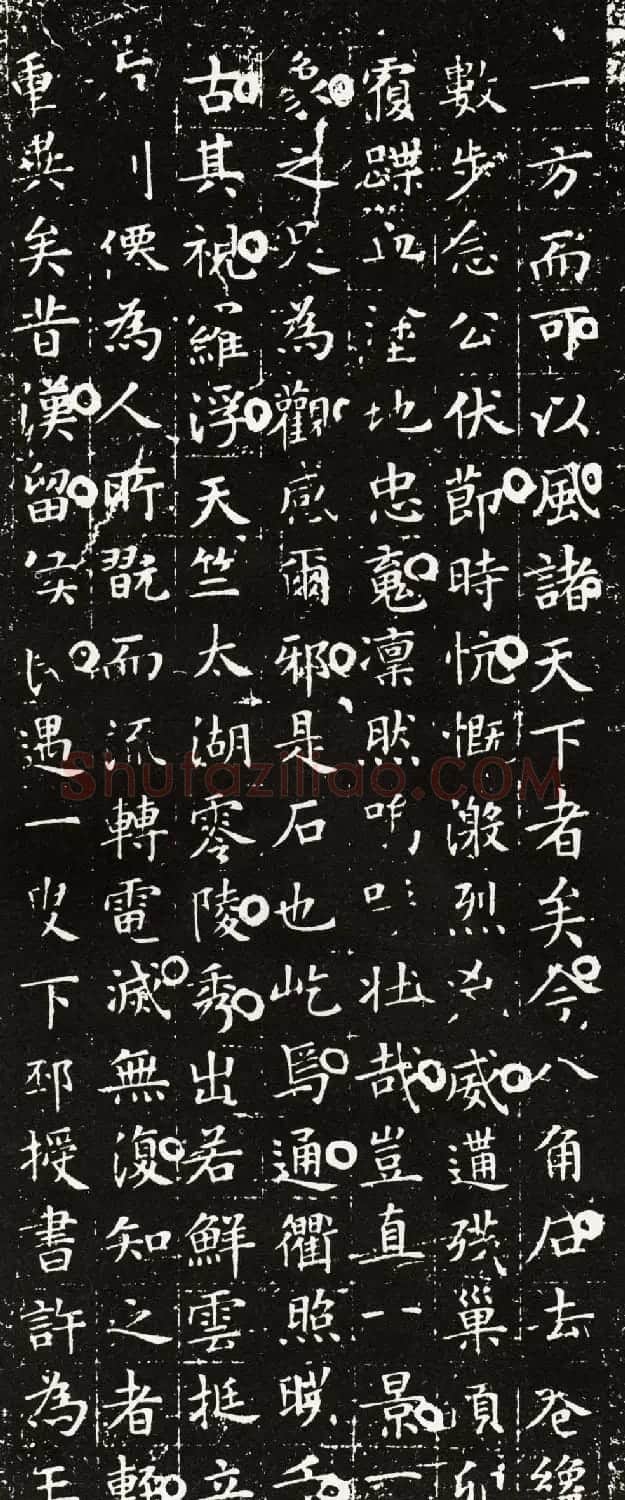 一方而可以風諸天下者矣今八角石去巷纔
數步念公伏節時忼慨激烈凶威遘殘巢
覆蹀血塗地忠魂凜然壯哉豈直一景一
之只為觀感爾邪是石也屹焉通衢照暎千
古其視羅浮天竺太湖零陵秀出若鮮雲挺立
為人所翫而流轉電滅無復知之者輕
重與矣昔漢留侯遇一叟下邳授書許為王
Shufaziliao.COM